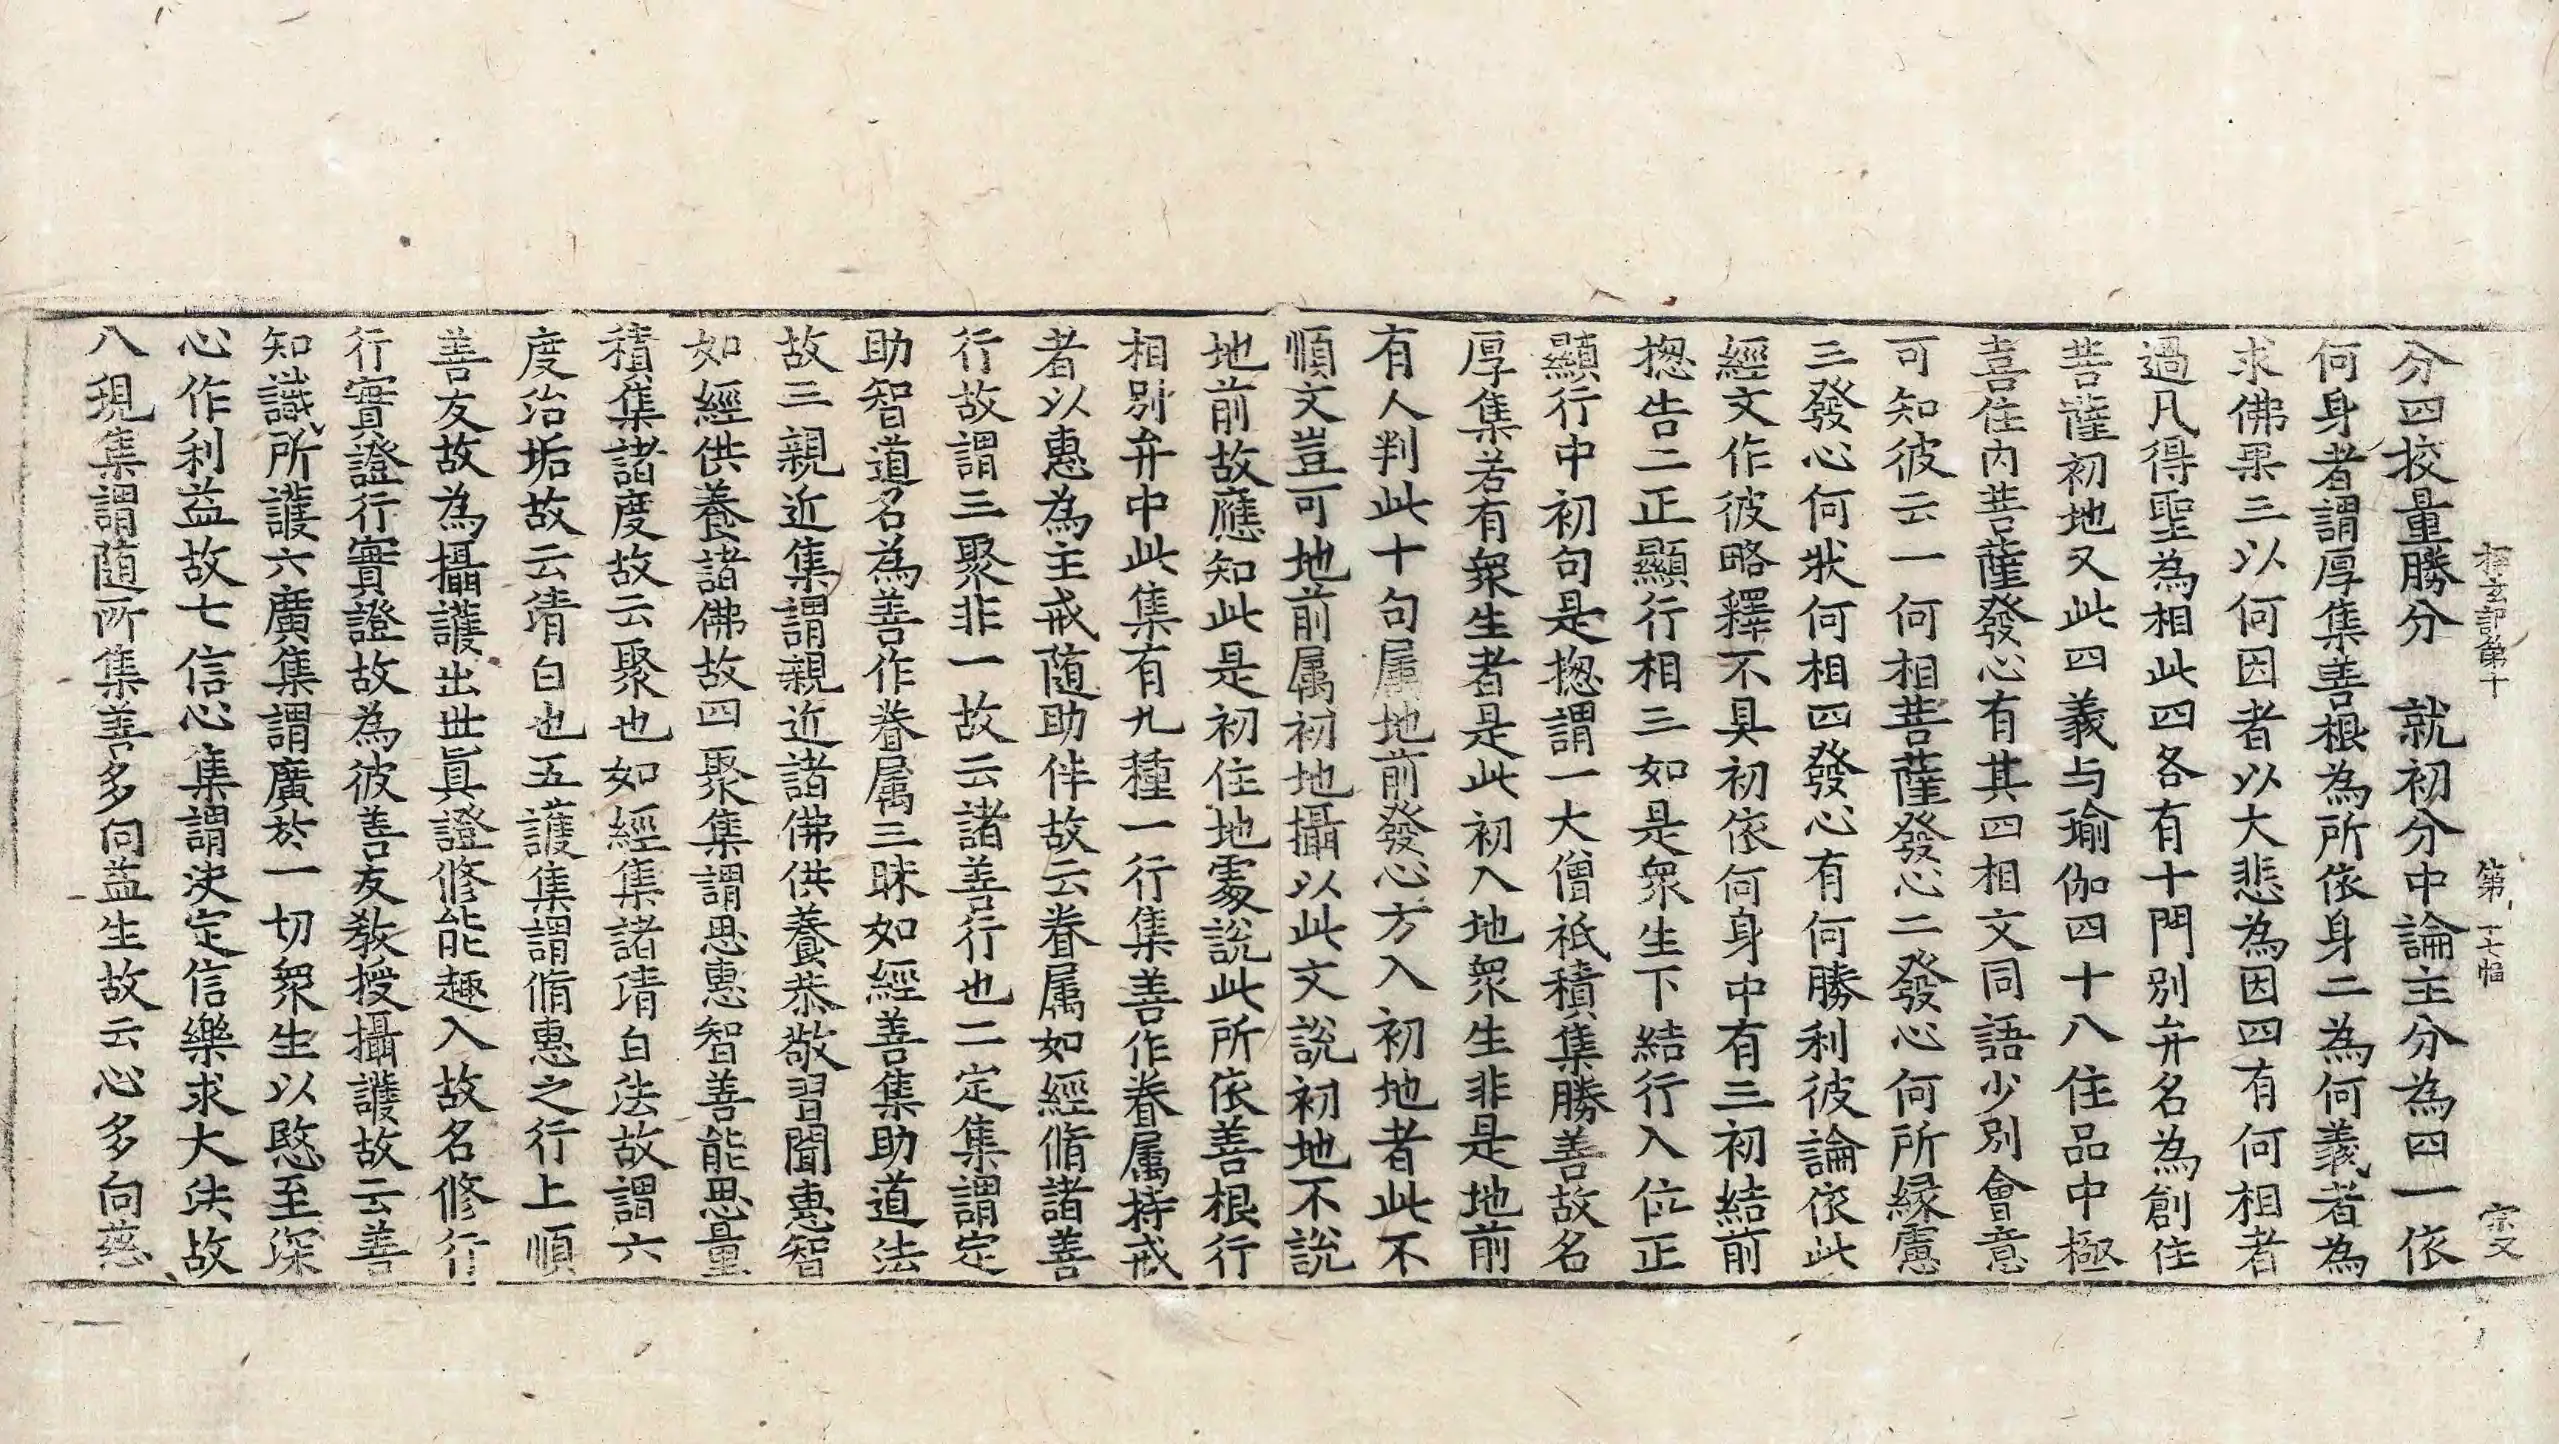 探玄記第十　第十七幅　㝎
分四挍量勝分　就初分中論主分為四一依
何身者謂厚集善根為所依身二為何義者為
求佛果三以何因者以大悲為因四有何相者
過凡得聖為相此四各有十門別弁名為創住
菩薩初地又此四義与瑜伽四十八住品中極
喜住內菩薩發心有其四相文同語少別會意
可知彼云一何相菩薩發心二發心何所緣慮
三發心何狀何相四發心有何勝利彼論依此
經文作彼略釋不具初依何身中有三初結前
揔告二正顯行相三如是衆生下結行入位正
顯行中初句是揔謂一大僧祇積集勝善故名
厚集若有衆生者是此初入地衆生非是地前
有人判此十句属地前發心方入初地者此不
順文豈可地前属初地攝以此文說初地不說
地前故應知此是初住地處說此所依善根行
相別弁中此集有九種一行集善作眷属持戒
者以惠為主戒随助伴故云眷属如經脩諸善
行故謂三聚非一故云諸善行也二定集謂定
助智道名為善作眷属三昧如經善集助道法
故三親近集謂親近諸佛供養恭敬習聞惠智
如經供養諸佛故四聚集謂思惠智善能思量
積集諸度故云聚也如經集諸清白法故謂六
度治垢故云清白也五護集謂脩惠之行上順
善友故為攝護出世真證修能趣入故名修行
行實證行實證故為彼善友教授攝護故云善
知識所護六廣集謂廣於一切衆生以愍至深
心作利益故七信心集謂決定信樂求大法故
八現集謂随所集善多向益生故云心多向慈